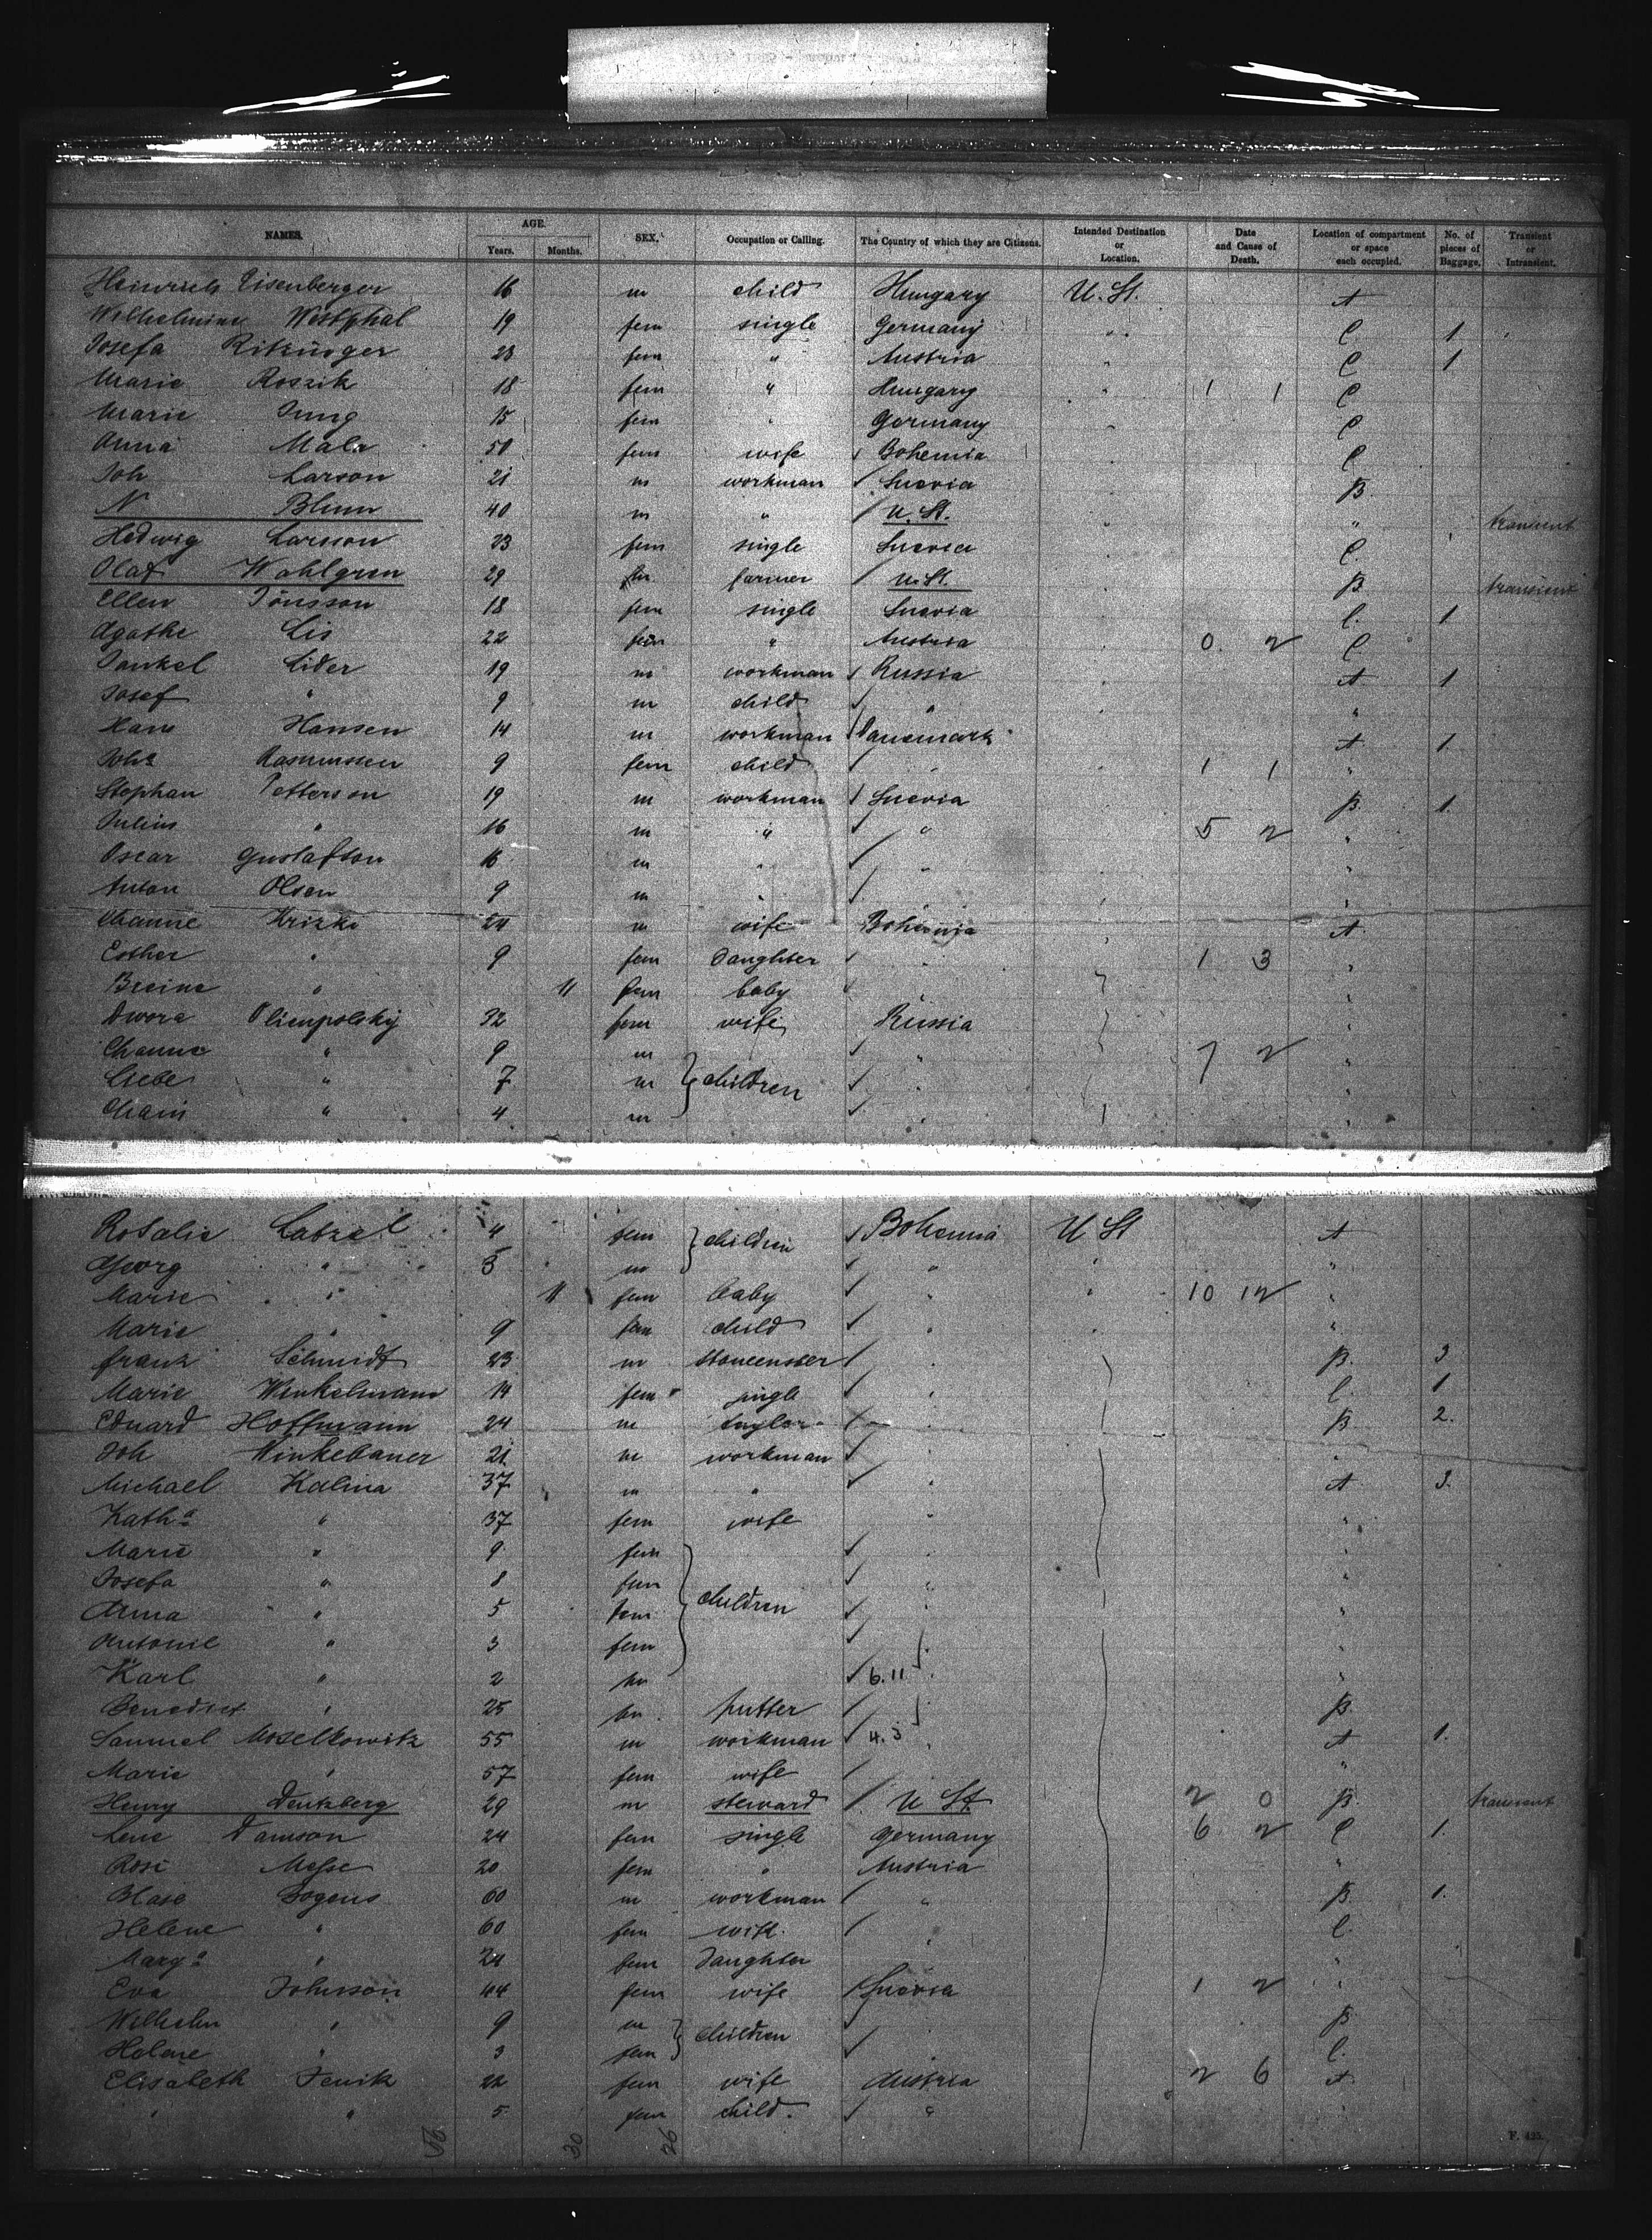 NAMES. AGE. Years. Months. SEX. Occupation or Calling. The Country of which they are Citizens. Intended Destination or Location. Date and Cause of Death. Location of compartment or space each occupied. No. of pieces of Baggage. Transient or Intransient.
Heinrich Eisenberger 16 m child Hungary U. St. A
Wilhelmine Westphal 19 fem single Germany " C 1
Josefa 23 fem " Austria " C 1
Marie Roszik 18 fem " Hungary " 1 1 C
Marie Jung 15 fem " Germany " C
Anna Mala 50 fem wife Bohemia C
Joh Larson 21 m workman Suecia B
N Blum 40 m " U. St. " " transient
Hedwig Larsson 23 fem single Suecia C
Olaf Wahlgren 29 m farmer U. St. B transient
Ellen Jönsson 18 fem single Suecia C. 1
Agathe Lis 22 fem " Austria 0 2 C
Jankel Lider 19 m workman Russia A 1
Josef " 9 m child " "
Hans Hansen 14 m workman Danemark A 1
Rasmussen 9 fem child " 1 1 "
Stephan Petterson 19 m workman Suecia B 1.
Julius " 16 m " " 5 2 "
Oscar Gustafson 16 m " " "
Anton Olsen 9 m " " "
Channe Krizki 24 m wife Bohemia A
Esther " 9 fem daughter " 1 3 "
Breine " 11 fem baby " "
Dwore 32 fem wife Russia "
Channe " 9 m " 7 2 "
Liebe " 7 m } children " "
Chain " 4 m " "
Rosalie Latzel 4 fem } children Bohemia U St A
Georg " m " " "
Marie " 11 fem baby " " 10 12 "
Marie " 9 fem child " " "
Franz Schmidt 23 m " B. 3
Marie Winkelmann 14 fem single " C. 1
Eduard Hoffmann 24 m taylor " B 2.
Joh Winkebauer 21 m workman "
Michael Kalina 37 m " " A 3.
Kath<sup>a</sup> " 37 fem wife " "
Marie " 9 fem "
Josefa " 8 fem " "
Anna " 5 fem } children " "
Antonie " 3 fem " "
Karl " 2 m 6.11 "
Benedict " 25 m B
Samuel Moselkowitz 55 m workman 4.3 A 1.
Marie " 57 fem wife "
Henry 29 m steward U St 2 0 B. transient
Lene Damson 24 fem single Germany 6 2 C 1.
Rosi Messe 20 fem " Austria "
Blase Bogens 60 m workman " B 1.
Helene " 60 fem wife " C.
Marg<sup>a</sup> " 24 fem daughter "
Eva Johnson 44 fem wife Suecia 1 2 "
Wilhelm " 9 m } children B
Helene " 3 fem C.
Elisabeth Fenik 22 fem wife Austria 2 6 A
" " 5 fem child. " "
56 30 26
F. 425.